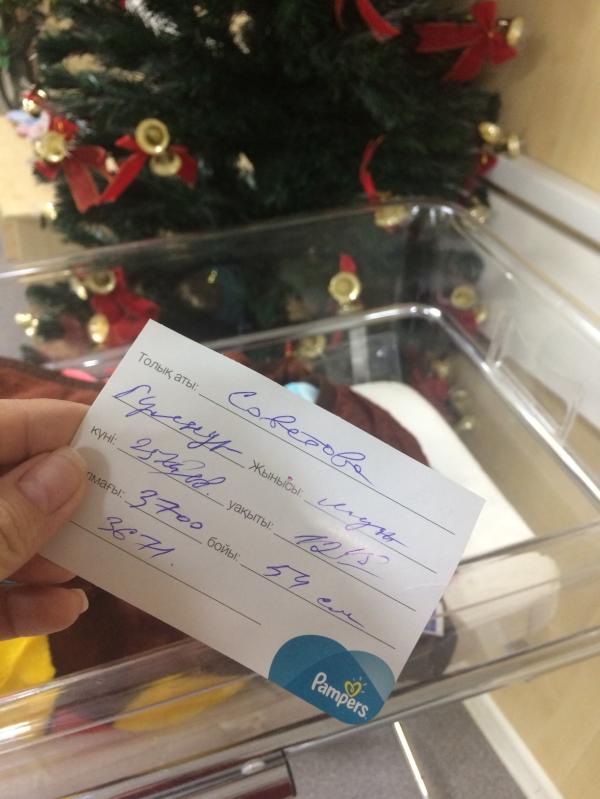 Толық аты: Советова
Гулжнур Жынысы: муж
күні: 25 уақыты: 12 45
лмағы: 3700 бойы: 54 см
3671.
Pampers